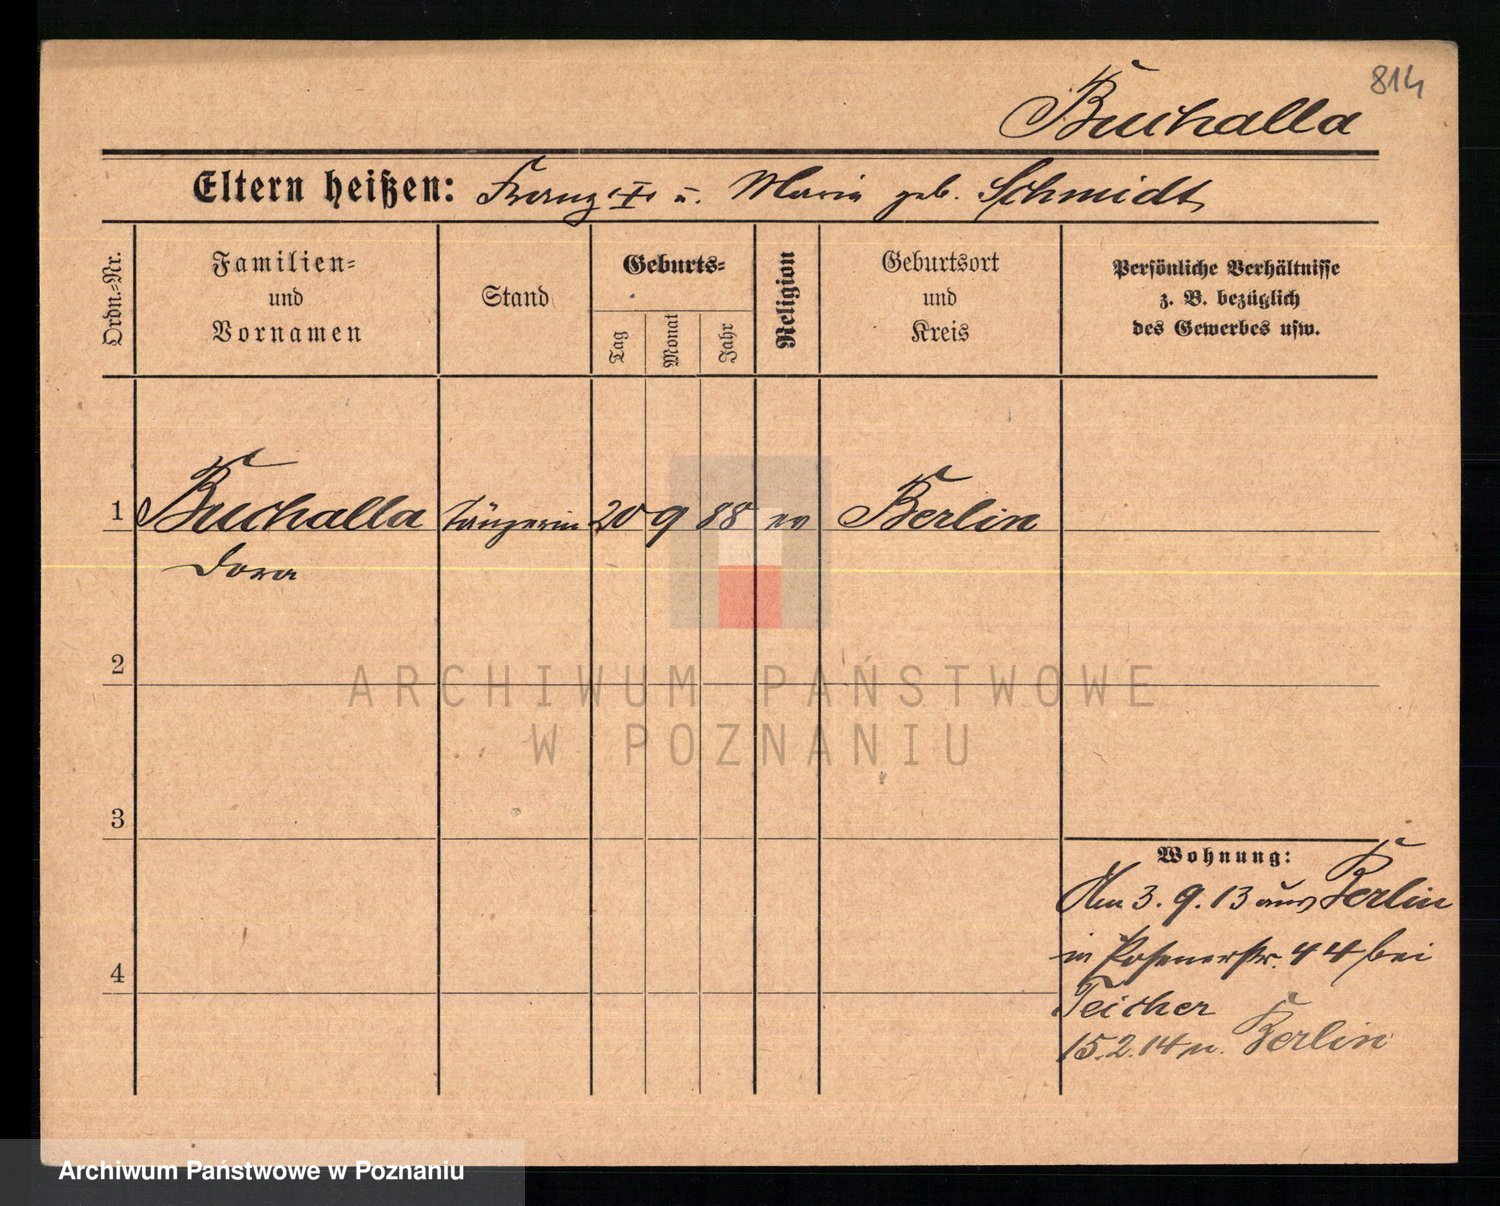 814
Buchalla
Eltern heißen: Franz † u. Maria geb. Schmidt
Ordn.-Nr.
Familien-
und
Vornamen
Stand
Geburts-
Tag
Monat
Jahr
Religion
Geburtsort
und
Kreis
Persönliche Verhältnisse
z. B. bezüglich
des Gewerbes usw.
1 Buchalla Tänzerin 20 9 88 ev Berlin
Dora
2
ARCHIWUM PAŃSTWOWE
W POZNANIU
3
Wohnung:
Am 3. 9. 13 aus Berlin
in Posenerstr. 44 bei
4
Teicher
15. 2. 14 n. Berlin
Archiwum Państwowe w Poznaniu